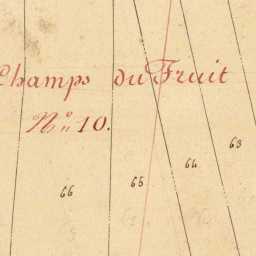 Champs du Fruit
N.º 10.
63
64
65
66